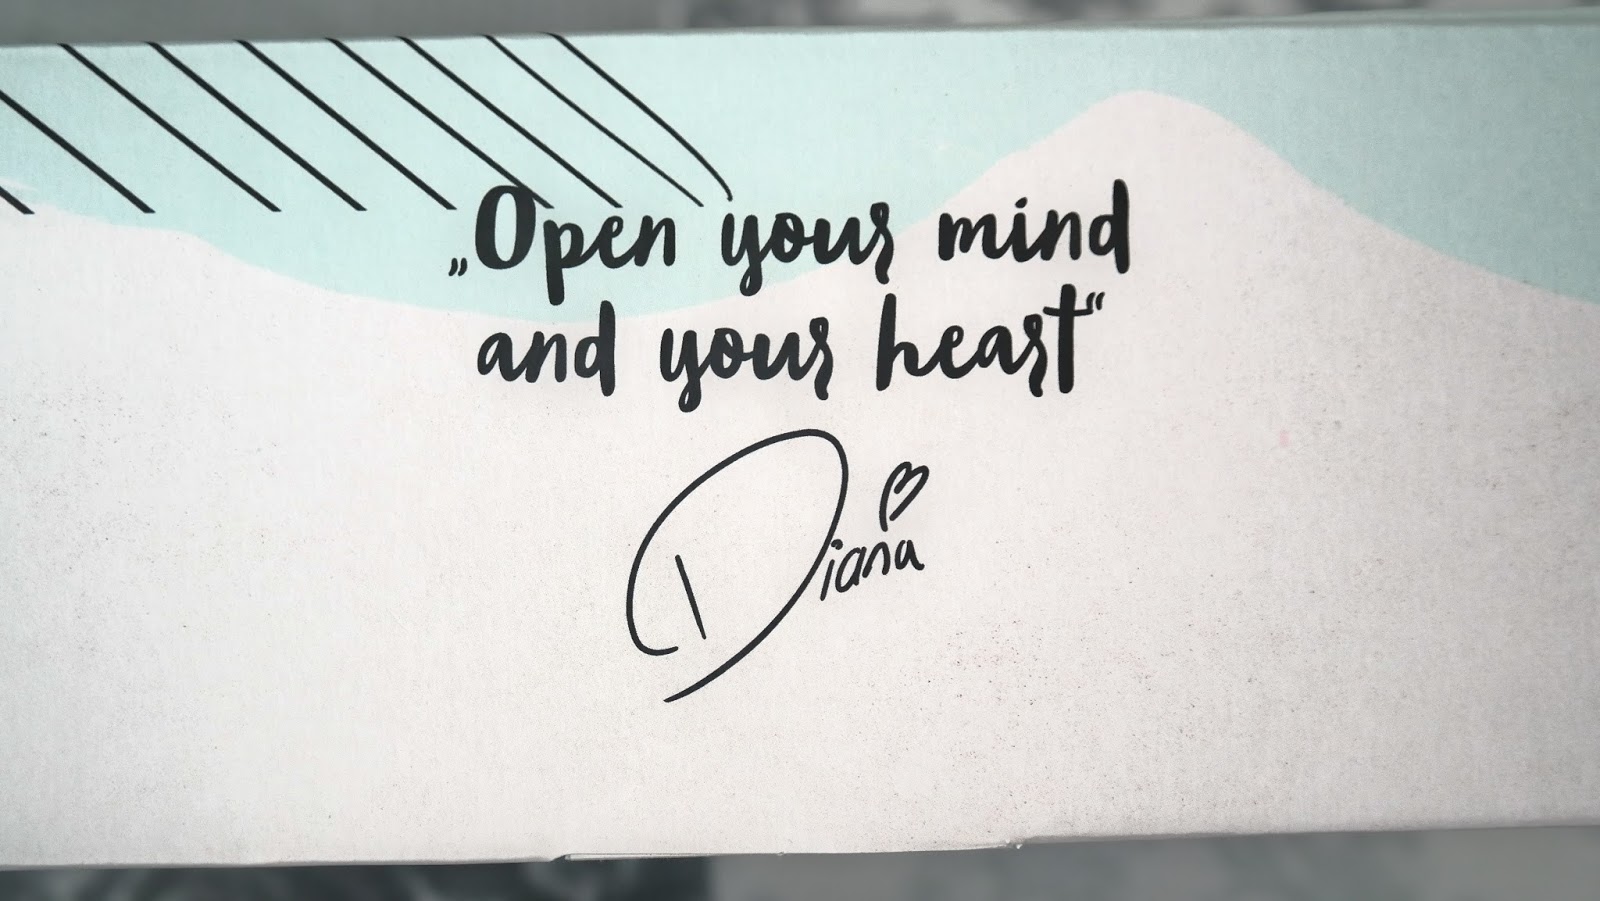 „Open your mind
and your heart“
Diana